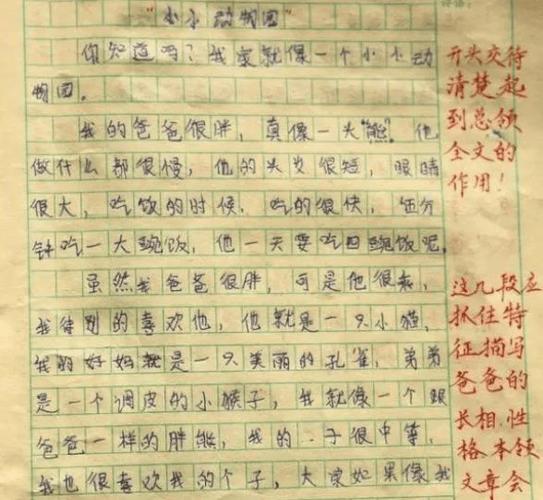 "小小动物园"
你知道吗?我家就像一个小小动
物园。
我的爸爸很胖,真像一头"熊"。他
做什么都很慢,他的头发很短,眼睛
很大,吃饭的时候,吃的很快,五分
钟吃一大碗饭,他一天要吃四碗饭呢。
虽然我爸爸很胖,可是他很,
我特别的喜欢他,他就是一只小猫,
我的好妈就是一只美丽的孔雀,弟弟
是一个调皮的小猴子,我就像一个跟
爸爸一样的胖熊,我的子很中等,
我也很喜欢我的个子,大家如果像我
开头交待
清楚起
到总领
全文的
作用!
这几段应
抓住特
征描写
爸爸的
长相,性
格本领
文章会